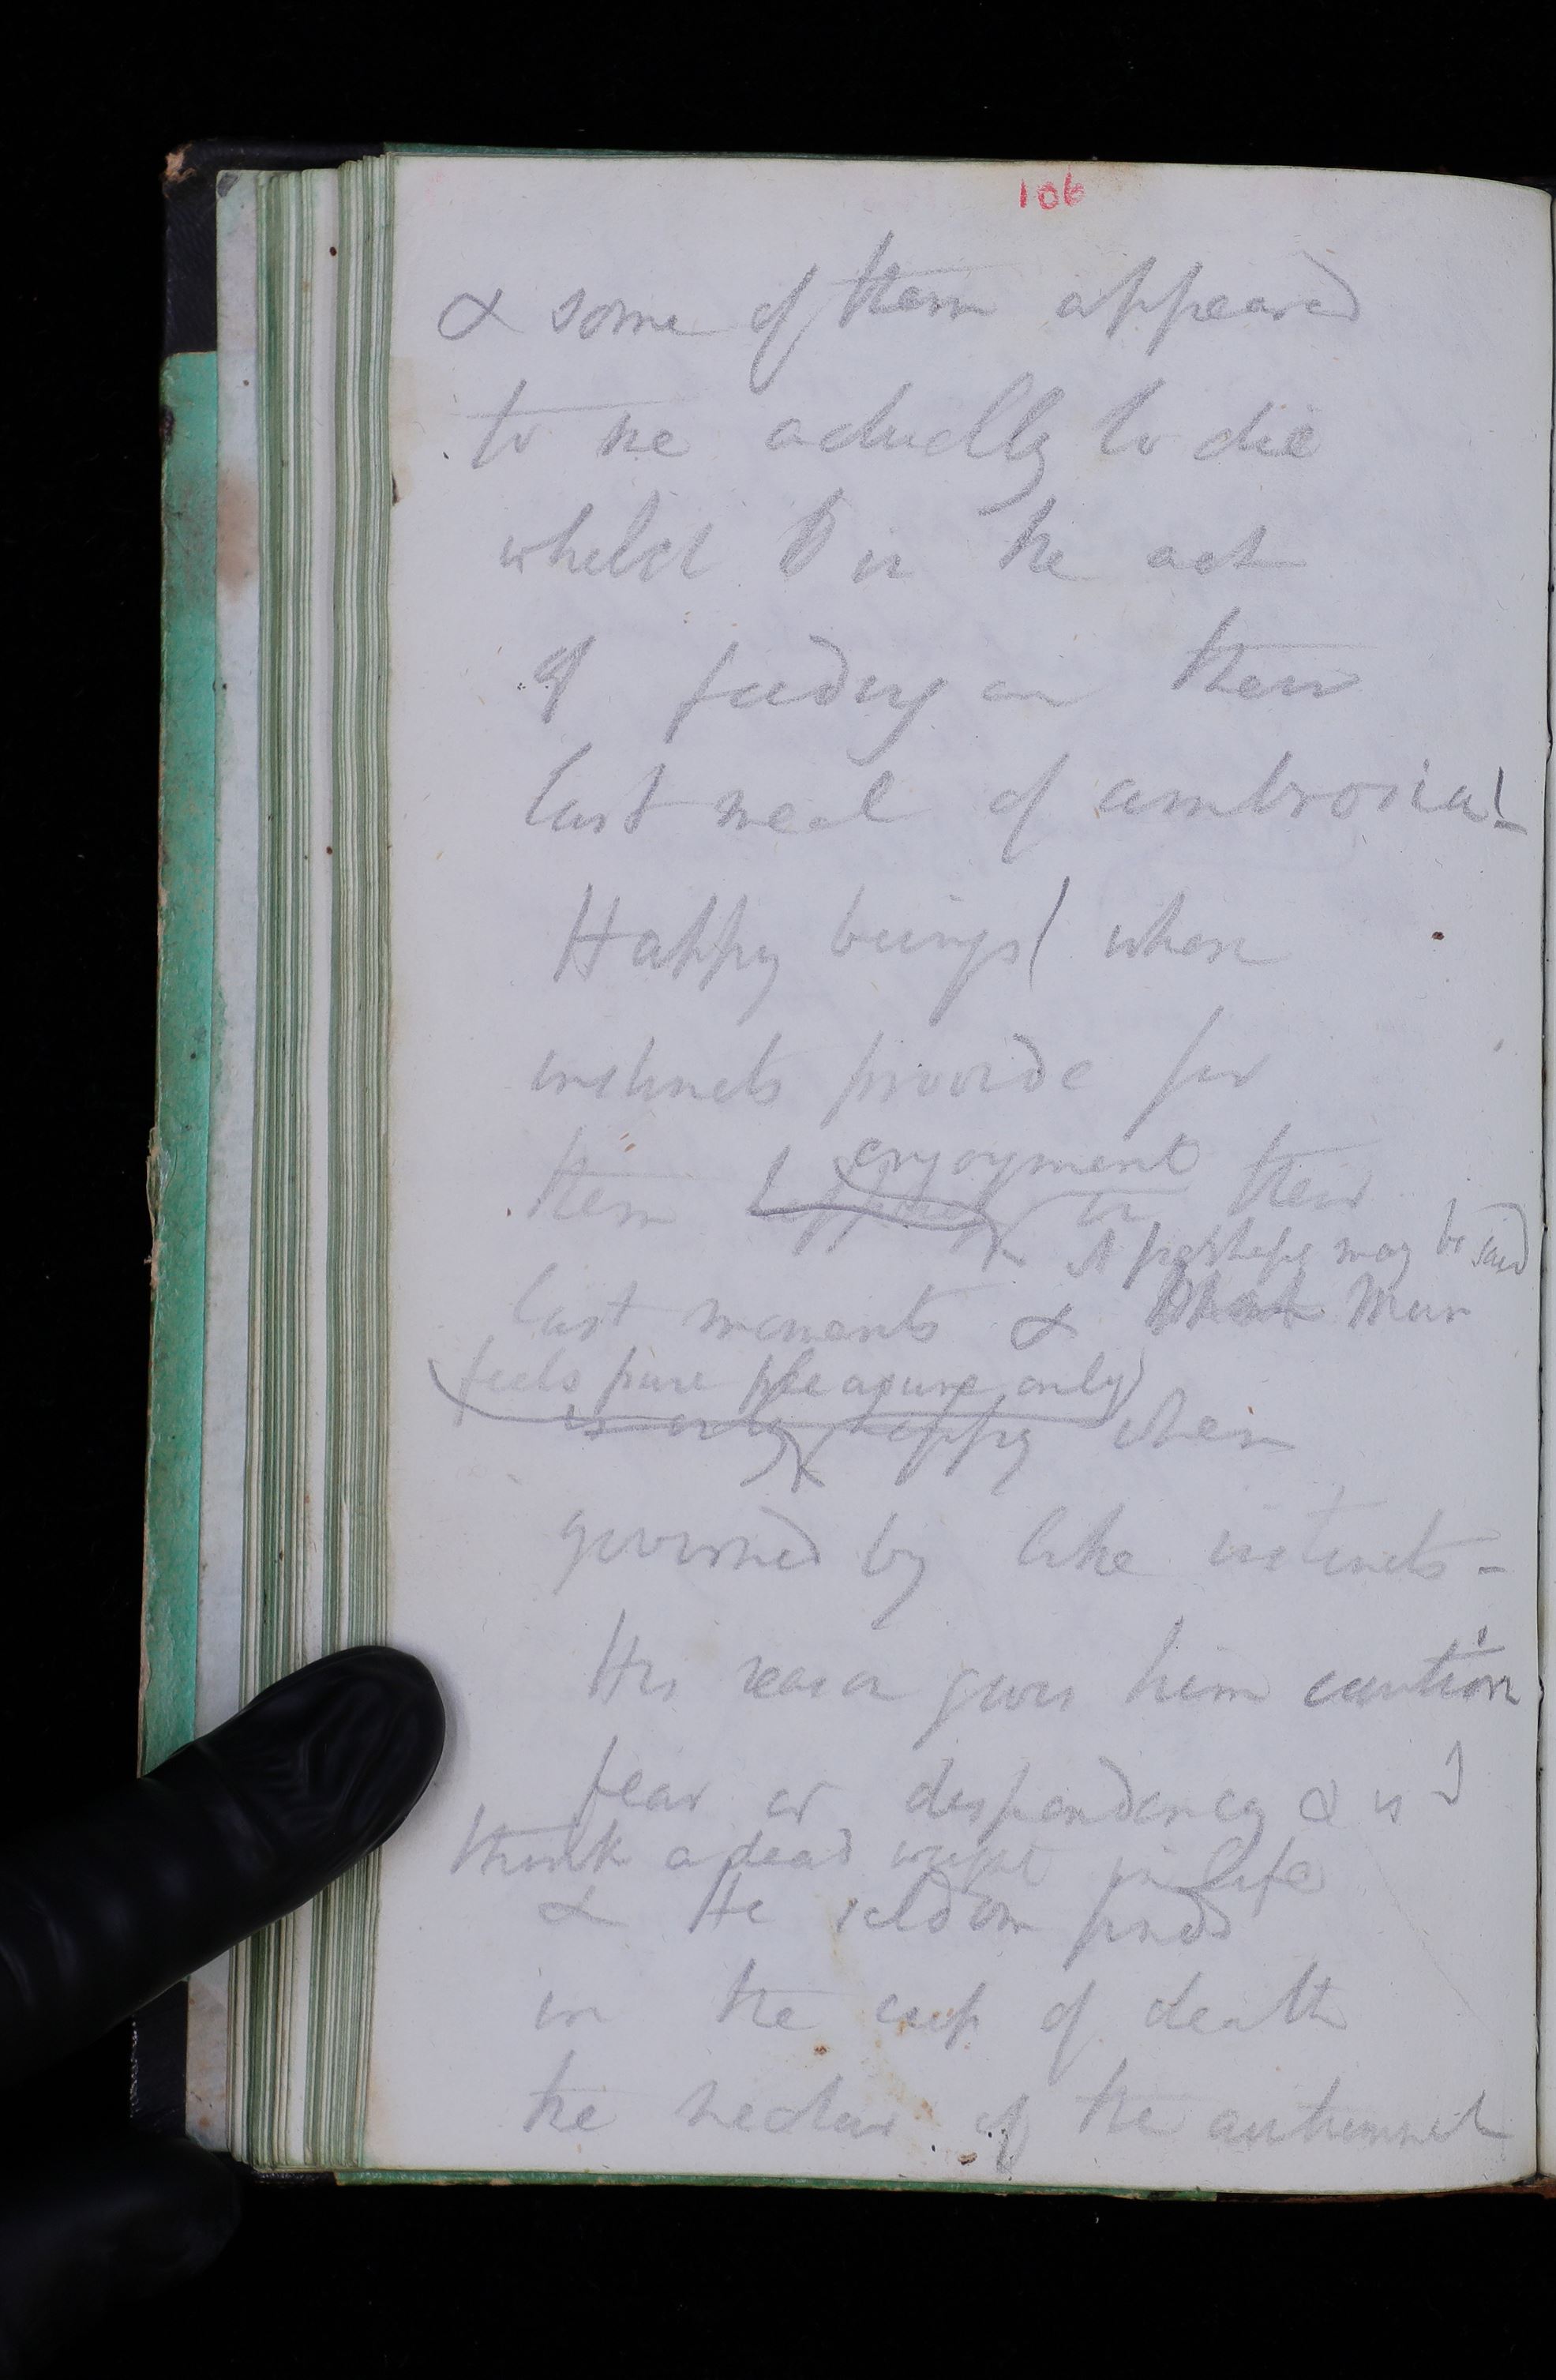 106
& some of them appeared
to me actually to die
whilst in the act
of feeding on their
last meal of ambrosia!
Happy beings! when
instincts provide for
enjoyment
them happiness in their
it perhaps may be said
last moments & that Man
feels pure pleasure only
is only happy when
governed by like instincts -
His reason gives him caution
fear or despondency & is I
think a dead weight in life
& He seldom finds
in the cup of death
the nectar of the autumnal